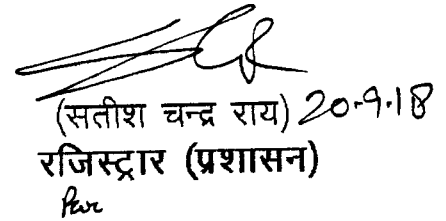 (सतीश चन्द्र राय) 20.9.18
रजिस्ट्रार (प्रशासन)